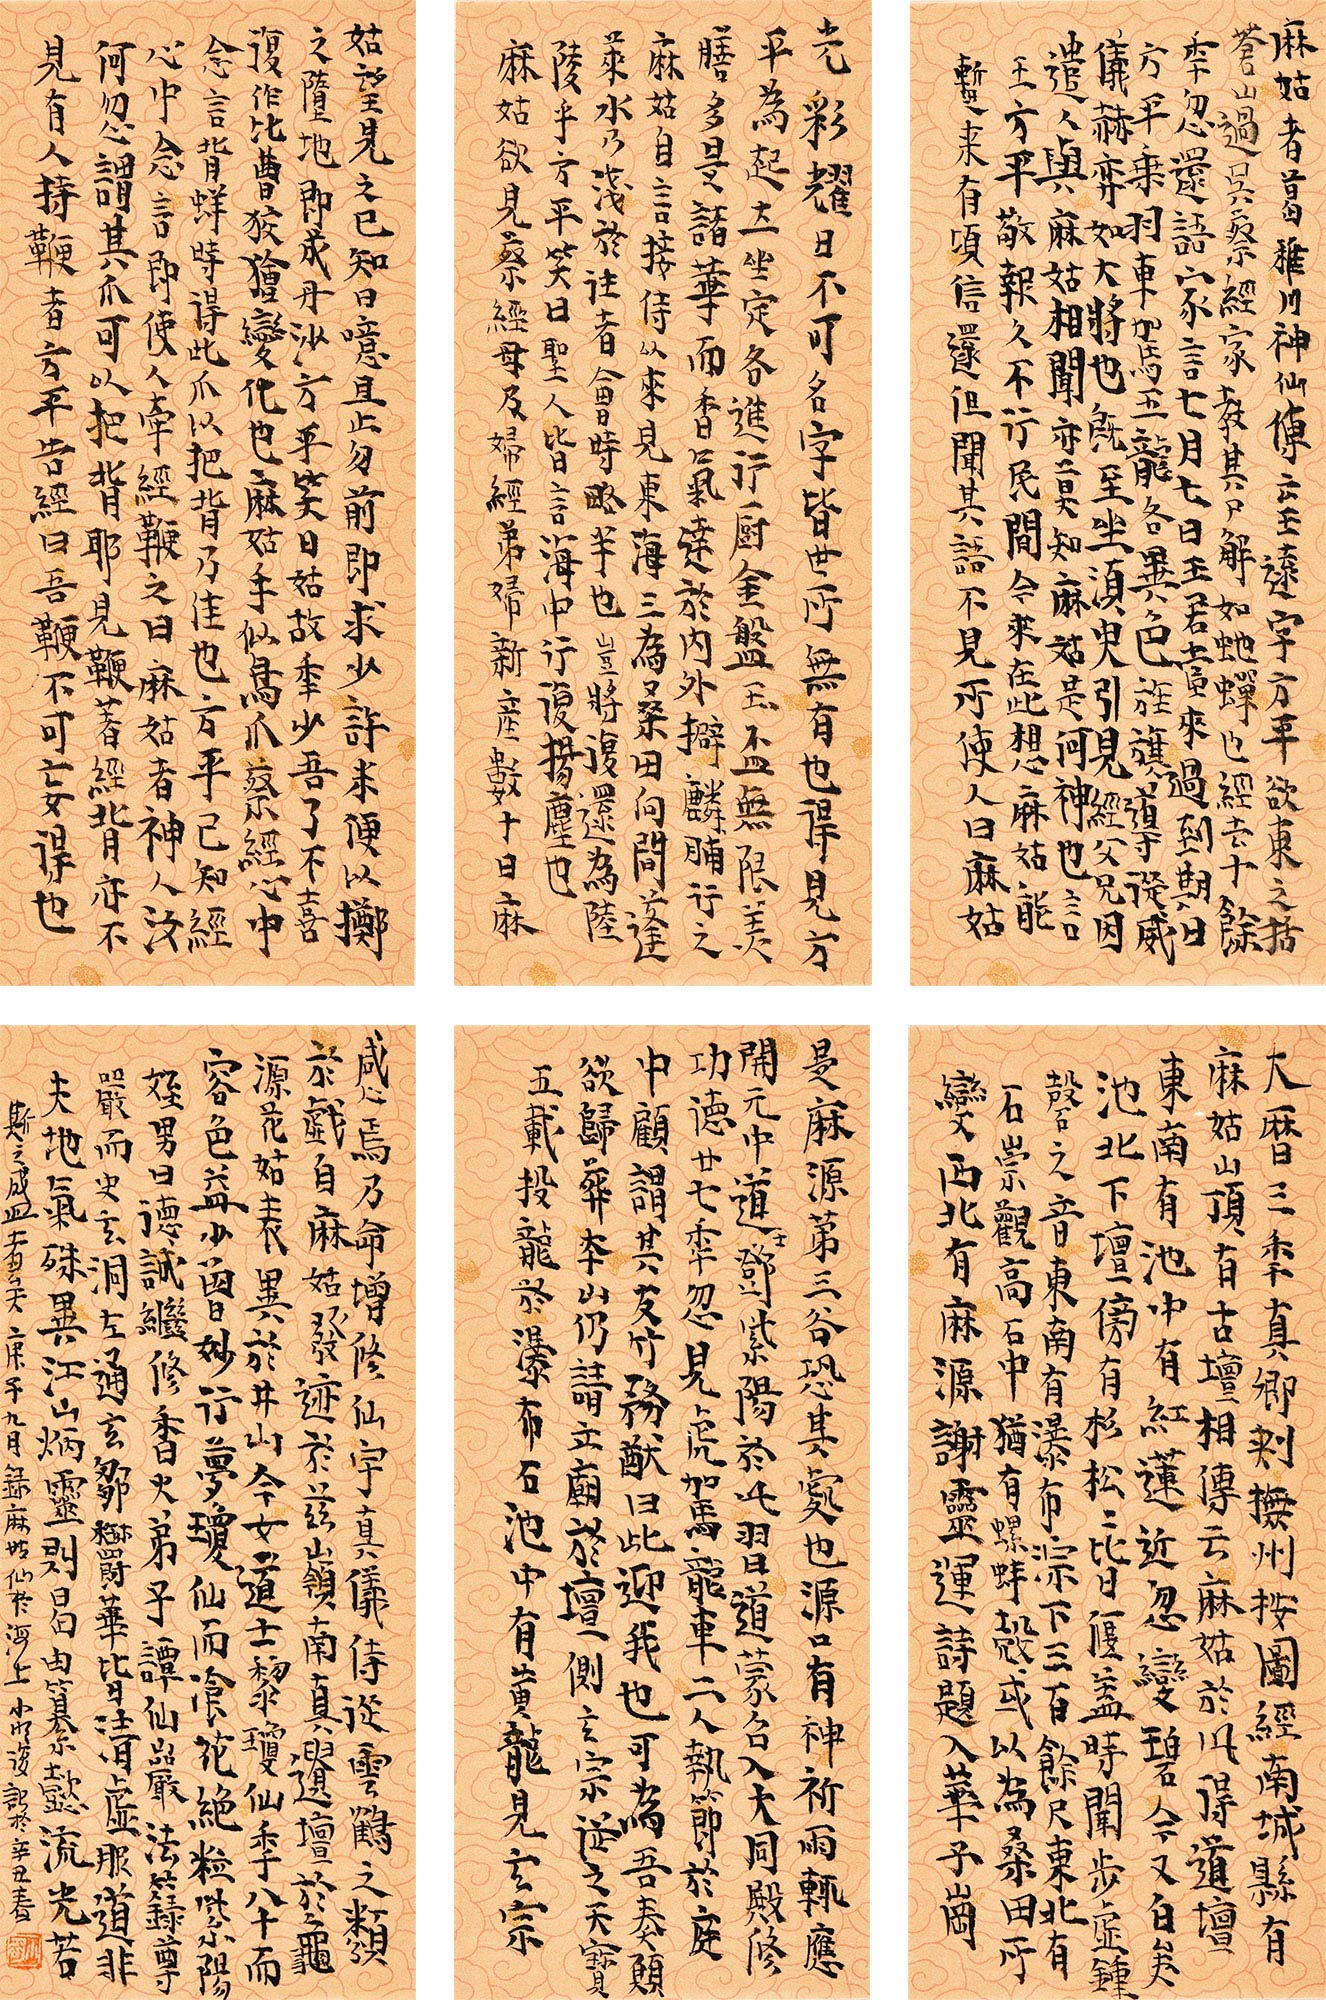 麻姑者葛稚川神仙傳云王遠字方平欲東之括
蒼山過吳蔡經家教其尸解如虵蟬也經去十餘
年忽還語家言七月七日王君當來過到期日
方平乘羽車駕五龍各異色旌旗導從威
儀赫弈如大將也既至坐須臾引見經父兄因
遣人與麻姑相聞亦莫知麻姑是何神也言
王方平敬報久不行民間今來在此想麻姑能
蹔來有頃信還但聞其語不見所使人曰麻姑
光彩耀日不可名字皆世所無有也得見方
平為起立坐定各進行厨金盤玉盃無限美
膳多是諸華而香氣達於內外擗麟脯行之
麻姑自言接侍以來見東海三為桑田向間蓬
萊水乃淺於往者會時略半也豈將復還為陸
陵乎方平笑曰聖人皆言海中行復揚塵也
麻姑欲見蔡經母及婦經弟婦新產數十日麻
姑望見之已知曰噫且止勿前即求少許米便以擲
之墮地即成丹沙方平笑曰姑故年少吾了不喜
復作此曹狡獪變化也麻姑手似鳥爪蔡經心中
念言背蛘時得此爪以把背乃佳也方平已知經
心中念言即使人牽經鞭之曰麻姑者神人汝
何忽謂其爪可以把背耶見鞭著經背亦不
見有人持鞭者方平告經曰吾鞭不可妄得也
大曆三年真卿刺撫州按圖經南城縣有
麻姑山頂有古壇相傳云麻姑於此得道壇
東南有池中有紅蓮近忽變碧今又白矣
池北下壇傍有杉松松皆偃蓋時聞步虛鍾
磬之音東南有瀑布淙下三百餘尺東北有
石崇觀高石中猶有螺蚌殼或以為桑田所
變西北有麻源謝靈運詩題入華子崗
是麻源第三谷恐其處也源口有神祈雨輒應
開元中道士鄧紫陽於此習道蒙召入大同殿修
功德廿七年忽見虎駕龍車二人執節於庭
中顧謂其友竹務猷曰此迎我也可為吾奏願
欲歸葬本山仍請立廟於壇側玄宗從之天寶
五載投龍於瀑布石池中有黃龍見玄宗
感焉乃命增修仙宇真儀侍從雲鶴之類
於戲自麻姑發迹於茲嶺南真遺壇於龜
源花姑表異於井山今女道士黎瓊仙年八十而
容色益少曾妙行夢瓊仙而飡花絕粒紫陽
姪男曰德誠繼修香火弟子譚仙巖法籙尊
嚴而史玄洞左通玄鄒鬱華皆清虛服道非
夫地氣殊異江山炳靈則曷由纂懿流光若
斯之盛者矣 庚子九月錄麻姑仙於海上 記於辛丑春